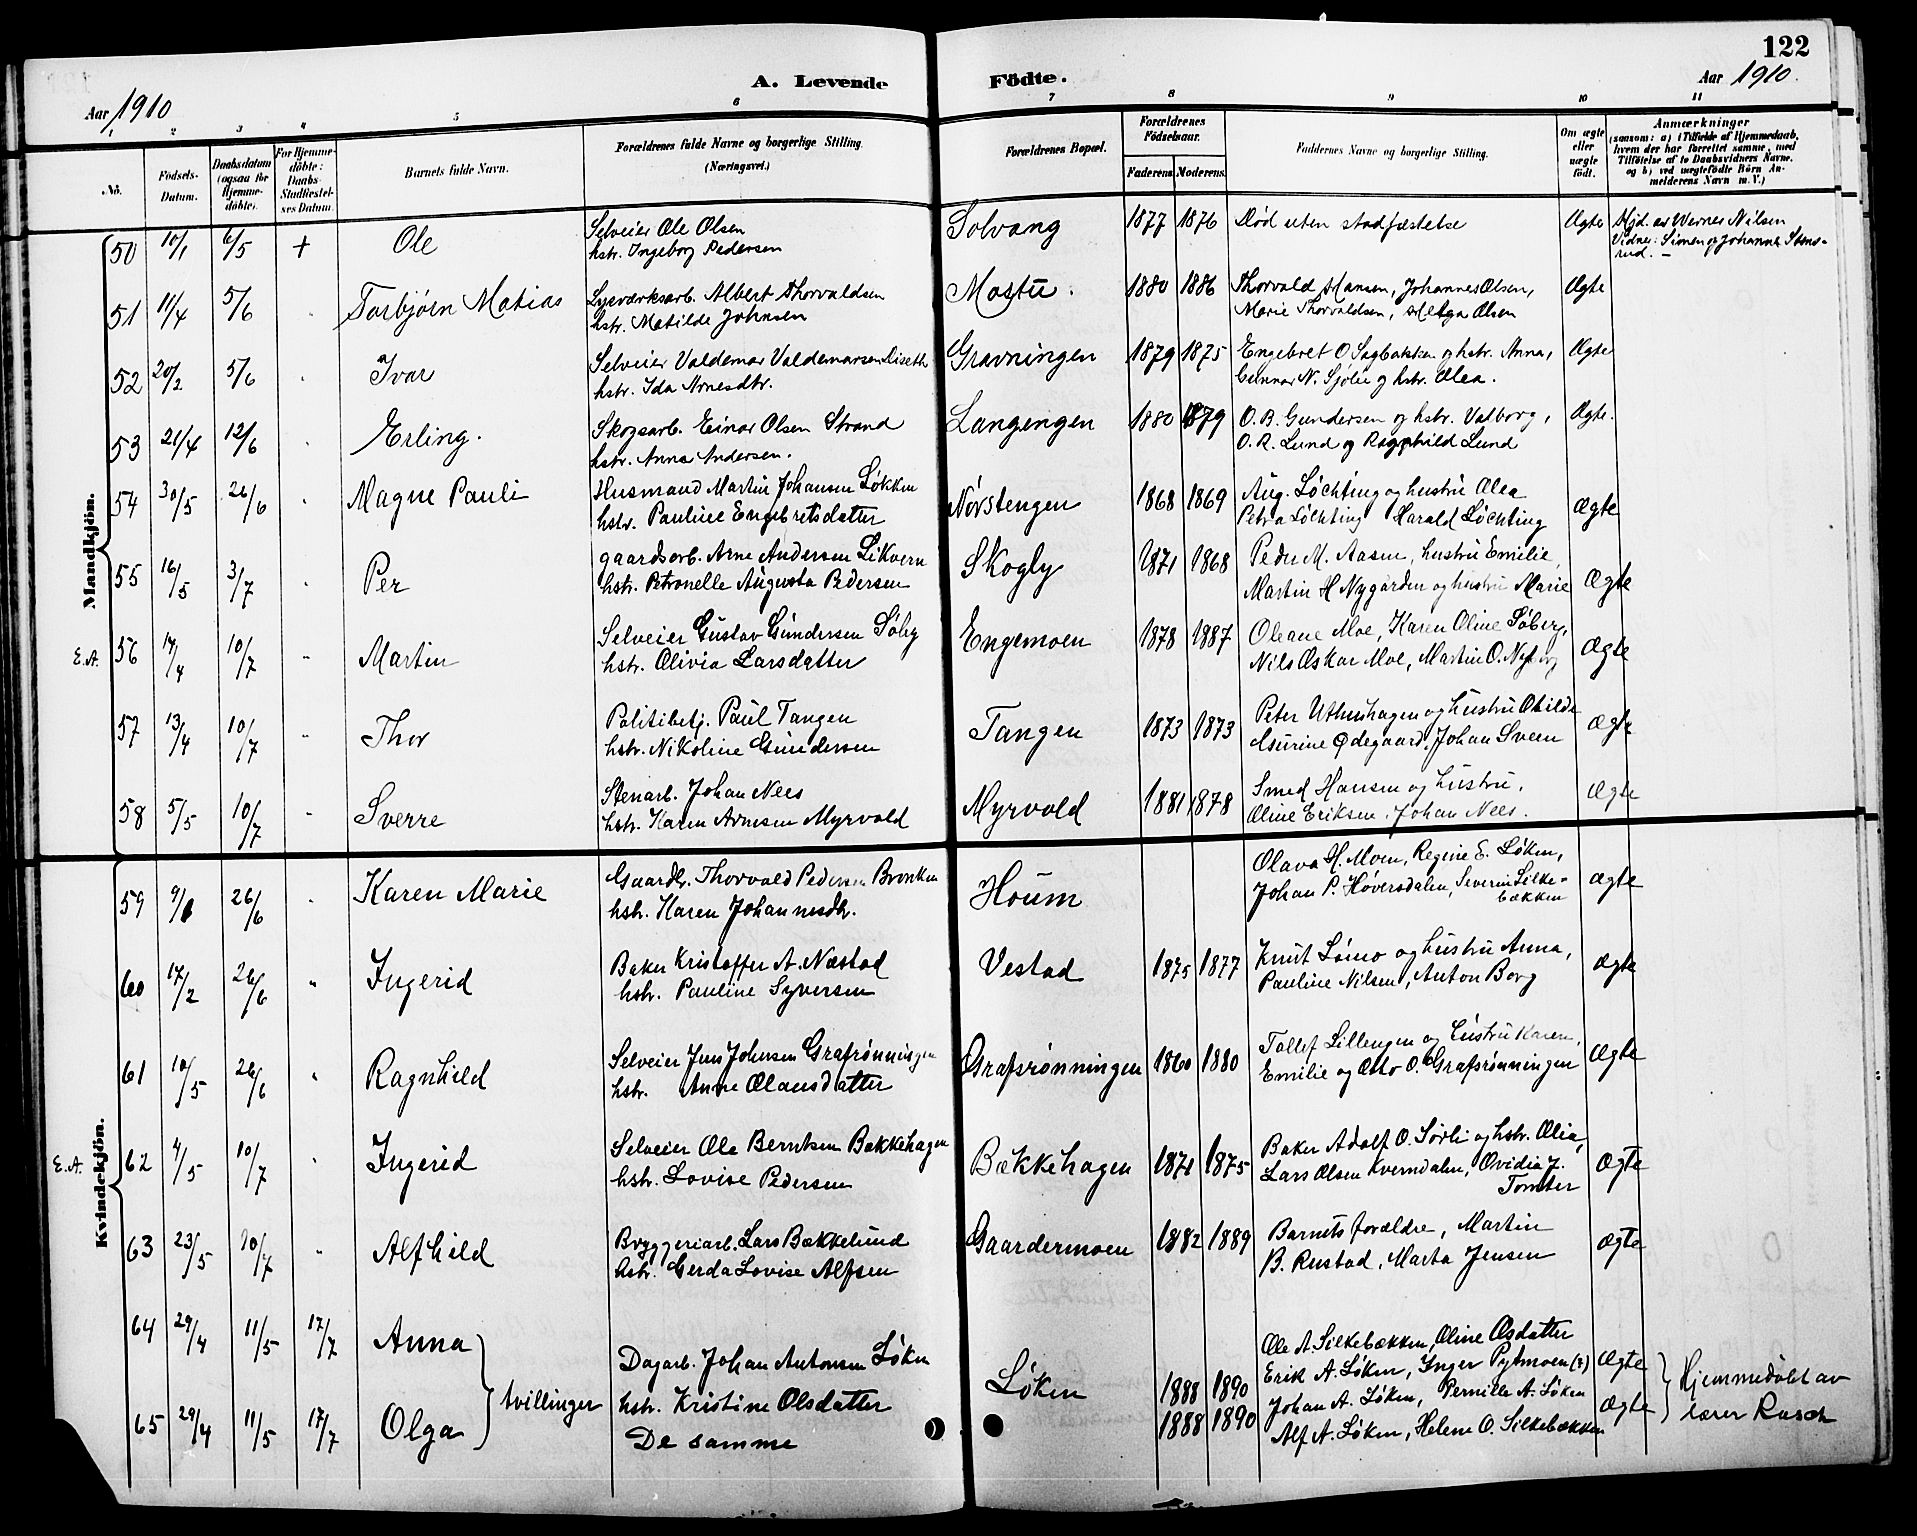 122
A. Levende Födte.
Aar 1910
Aar 1910.
1 2 3 4 5 6 7 8 9 10 11
No.
Födsels-Datum.
Daabsdatum (ogsaa for Hjemme-döbte).
For Hjemme-döbte: Daabs-Stadfæstel-ses Datum.
Barnets fulde Navn.
Forældrenes fulde Navne og borgerlige Stilling.
(Næringsvei.)
Forældrenes Bopæl.
Forældrenes Födselsaar.
Faderens. Moderens.
Faddernes Navne og borgerlige Stilling.
Om ægte eller uægte födt.
Anmærkninger
(saasom: a) (Tilfælde af Hjemmedaab,
hvem der har forrettet samme, med
Tilföielse af to Daabsvidners Navne,
og b) ved uægtefödte Börn An-
melderens Navn m. V.)
Mandkjön.
50 10/1 6/5 + Ole
Selveier Ole Olsen
hstr. Ingeborg Pedersen
Solvang 1877 1876 Død uten stadfæstelse Ægte
Hjd. av Werner Nilsen
Vidner: Simen og Johanne Stens-
rud. –
51 11/4 5/6 Torbjørn Matias
Lysværksarb. Albert Thorvaldsen
hstr. Matilde Johnsen
Mostu. 1880 1886
Thorvald Hansen, Johannes Olsen,
Marie Thorvaldsen, Helga Olsen
Ægte
52 20/2 5/6 Ivar
Selveier Valdemar Valdemarsen Diseth
hstr. Ida Arnesdtr.
Gravningen 1879 1875
Engebret O Sagbakken og hstr. Anna,
Gunnar N. Sjølie og hstr. Olea.
Ægte
53 21/4 12/6 Erling.
Skogsarb. Einar Olsen Strand
hstr. Anna Andersen.
Langengen 1880 1879
O. B. Gundersen og hstr. Valborg,
O. R. Lund og Ragnhild Lund
Ægte.
54 30/5 26/6 Magne Pauli
Husmand Martin Johansen Løkken
hstr. Pauline Engebretsdatter
Nørstengen 1868 1869
Aug. Løchting og hustru Olea
Petra Løchting Harald Løchting
Ægte
55 16/5 3/7 Per
gaardsarb. Arne Andersen Likvern
hstr. Petronelle Augusta Pedersen
Skogly 1871 1868
Peder M. Aasen, hustru Emilie,
Martin H Nygården og hustru Marie
Ægte
E.A. 56 17/4 10/7 Martin
Selveier Gustav Gundersen Søby
hstr. Olivia Larsdatter
Engemoen 1878 1887
Oleane Moe, Karen Oline Søberg,
Nils Oskar Moe, Martin O. Nyborg
Ægte
57 13/4 10/7 Thor
Politibetj. Paul Tangen
hstr. Nikoline Gundersen
Tangen 1873 1873
Peter Uthushagen og hustru Otilde
Gurine Ødegaard, Johan Sveen
Ægte
58 5/5 10/7 Sverre
Stenarb. Johan Nees
hstr. Karen Arnesen Myrvold
Myrvold 1881 1878
Smed Hansen og hustru.
Oline Eriksen, Johan Nees.
Ægte
Kvindekjön.
59 26/6 Karen Marie
Gaardbr. Thorvald Pedersen Bronken
hstr. Karen Johannesdtr.
Houm
Olava H. Moen, Regine E. Løken,
Johan P. Høversdalen, Severin Silke-
bækken
Ægte
60 17/2 26/6 " Ingerid
Baker Kristoffer A. Næstad
hstr. Pauline Syversen
Vestad 1875 1877
Knut Lømo og hustru Anna,
Pauline Nilsen, Anton Borg
Ægte
61 10/5 26/6 " Ragnhild
Selveier Jens Johnsen Grafsrønningen
hstr. Anne Olausdatter
Grafsrønningen 1860 1880
Tollef Lillengen og hustru Karen,
Emilie og Otto O. Grafsrønningen
Ægte
E.A. 62 4/5 10/7 " Ingerid
Selveier Ole Berntsen Bækkehagen
hstr. Lovise Pedersen
Bækkehagen 1871 1875
Baker Adolf O. Sørli og hstr. Olia,
Lars Olsen Kverndalen, Ovidia J.
Tomter
Ægte
63 23/5 10/7 " Alfhild
Bryggeriarb. Lars Bækkelund
hstr. Gerda Lovise Alfsen
Gaardermoen 1882 1889
Barnets forældre, Martin
B. Rustad, Marta Jensen
Ægte
64 29/4 11/5 17/7 Anna
65 29/4 11/5 17/7 Olga
tvillinger
Dagarb. Johan Antonsen Løken
hstr. Kristine Olsdatter
De samme
Løken
1888 1890
1888 1890
Ole A Silkebækken, Oline Olsdatter
Erik A. Løken, Inger Pytmoen (?)
Johan A. Løken, Pernille A. Løken
Alf A. Løken, Helene O. Silkebækken
Ægte
Ægte
Hjemmedøbt av
lærer Rasch